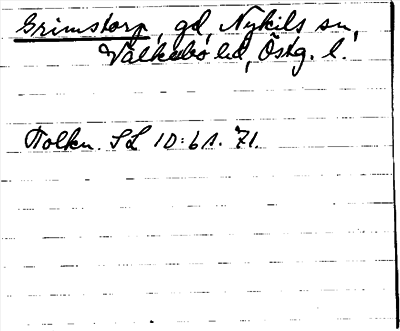 Grimstorp, gd, Nykils sn,
Valkebo hd, Östg. l.
Tolkn. SL 10:61. 71.